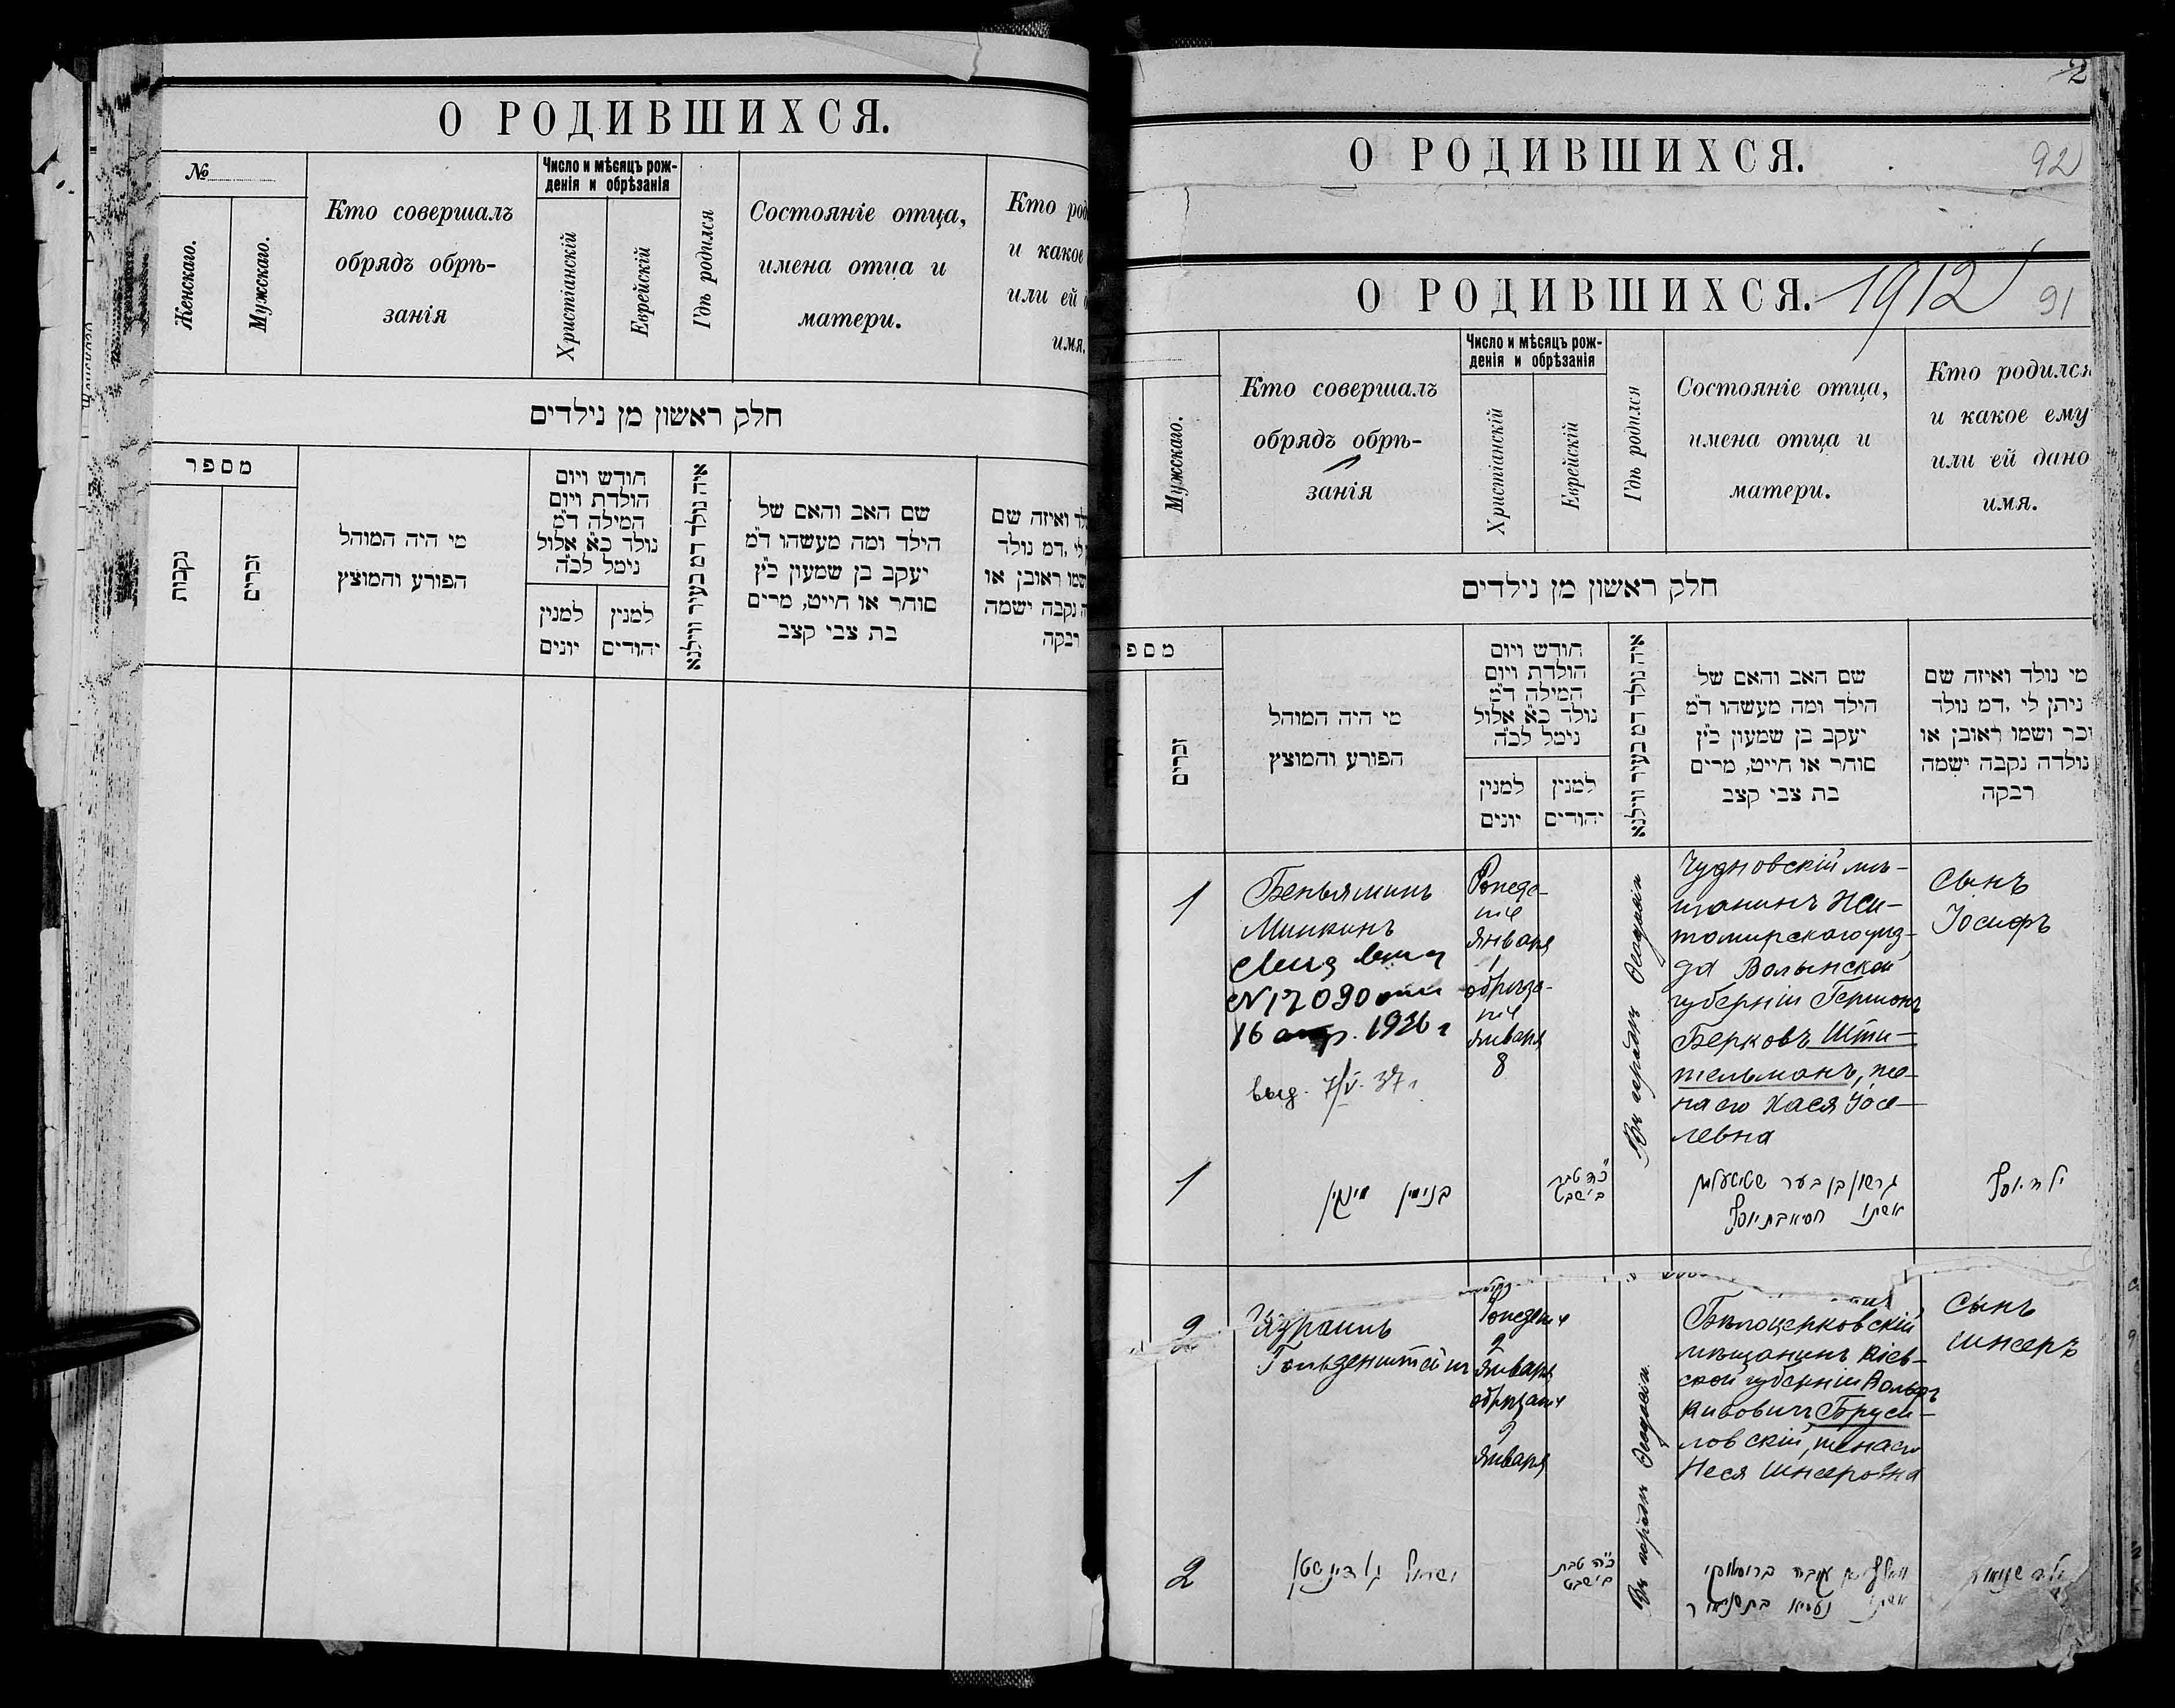 О РОДИВШИХСЯ.
№
Женскаго.
Мужскаго.
Кто совершалъ
обрядъ обрѣ-
занія
Число и мѣсяцъ рож-
денія и обрѣзанія
Христіанскій
Еврейскій
Гдѣ родился
Состояніе отца,
имена отца и
матери.
Кто
и какое
или ей
имя.
חלק ראשון מן נילדים
מספר
נקבות
זכרים
מי היה המוהל
הפורע והמוצץ
חודש ויום
הולדת ויום
המילה ד״מ
נולד כ״א אלול
נימל לכ״ה
למנין
יונים
למנין
יהודים
איה נולד דמ בעיר ווילנא
שם האב והאם של
הילד ומה מעשהו ד״מ
יעקב בן שמעון כ״ץ
סוחר או חייט, מרים
בת צבי קצב
ואיזה שם
לי, דמ נולד
ראובן או
נקבה ישמה
רבקה
2
О РОДИВШИХСЯ.
92
О РОДИВШИХСЯ. 1912
91
Мужскаго.
Кто совершалъ
обрядъ обрѣ-
занія
Число и мѣсяцъ рож-
денія и обрѣзанія
Христіанскій
Еврейскій
Гдѣ родился
Состояніе отца,
имена отца и
матери.
Кто родился
и какое ему
или ей дано
имя.
חלק ראשון מן נילדים
זכרים
מי היה המוהל
הפורע והמוצץ
חודש ויום
הולדת ויום
המילה ד״מ
נולד כ״א אלול
נימל לכ״ה
למנין
יונים
למנין
יהודים
איה נולד דמ בעיר ווילנא
שם האב והאם של
הילד ומה מעשהו ד״מ
יעקב בן שמעון כ״ץ
סוחר או חייט, מרים
בת צבי קצב
מי נולד ואיזה שם
ניתן לי, דמ נולד
זכר ושמו ראובן או
נולדה נקבה ישמה
רבקה
1
Беньяминъ
Минкинъ
№ 17090
16 апр. 1936 г
выд. 7/V-37 г.
января
1
обрѣза-
ніе
января
8
Въ городѣ Ѳеодосіи
Чудновскій мѣ-
щанинъ Жи-
томирскаго уѣз-
да Волынской
губерніи Гершонъ
Берковъ Шти-
тельманъ, же-
на его Хася Іосе-
левна
Сынъ
Іосифъ
1
בנימין מינקין
כ״ה טבת
ב׳ שבט
גרשון בן בער שטיטעלמן
אשתו חסיא בת יוסף
ילד יוסף
2
Израиль
Гольденштейнъ
2
января
обрѣзаніе
9
января
Въ городѣ Ѳеодосіи
Бѣлоцерковскій
мѣщанинъ Кіев-
ской губерніи Вольфъ
Кивовичъ Бруси-
ловскій, жена его
Неся Шнееровна
Сынъ
Шнееръ
2
ישראל גולדינשטין
ב׳ שבט